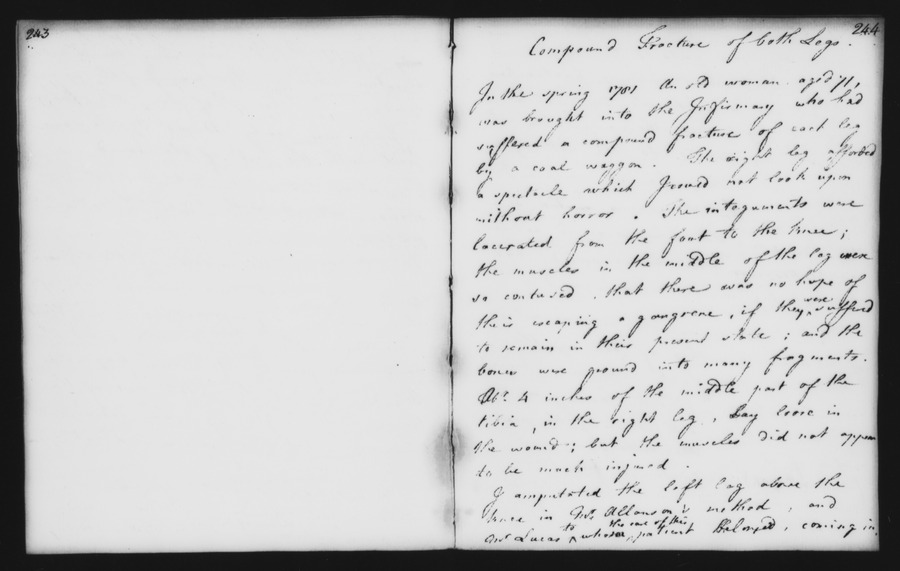 243
244
Compound Fracture of both Legs.
In the spring 1781 An old woman aged 71,
was brought into the Infirmary who had
suffered a compound fracture of each leg
by a coal waggon. The right leg afforded
a spectacle which I could not look upon
without horror. The integuments were
lacerated from the foot to the knee;
the muscles in the middle of the leg were
so contused that there was no hope of
their escaping a gangrene, if they were suffered
to remain in their present state; and the
bones were ground into many fragments.
Abt. 4 inches of the middle part of the
tibia, in the right leg, lay loose in
the wound; but the muscles did not appear
to be much injured.
I amputated the left leg above the
knee in Mr Allanson's method, and
Mr Lucas to whose the care of this patient belonged, coming in,